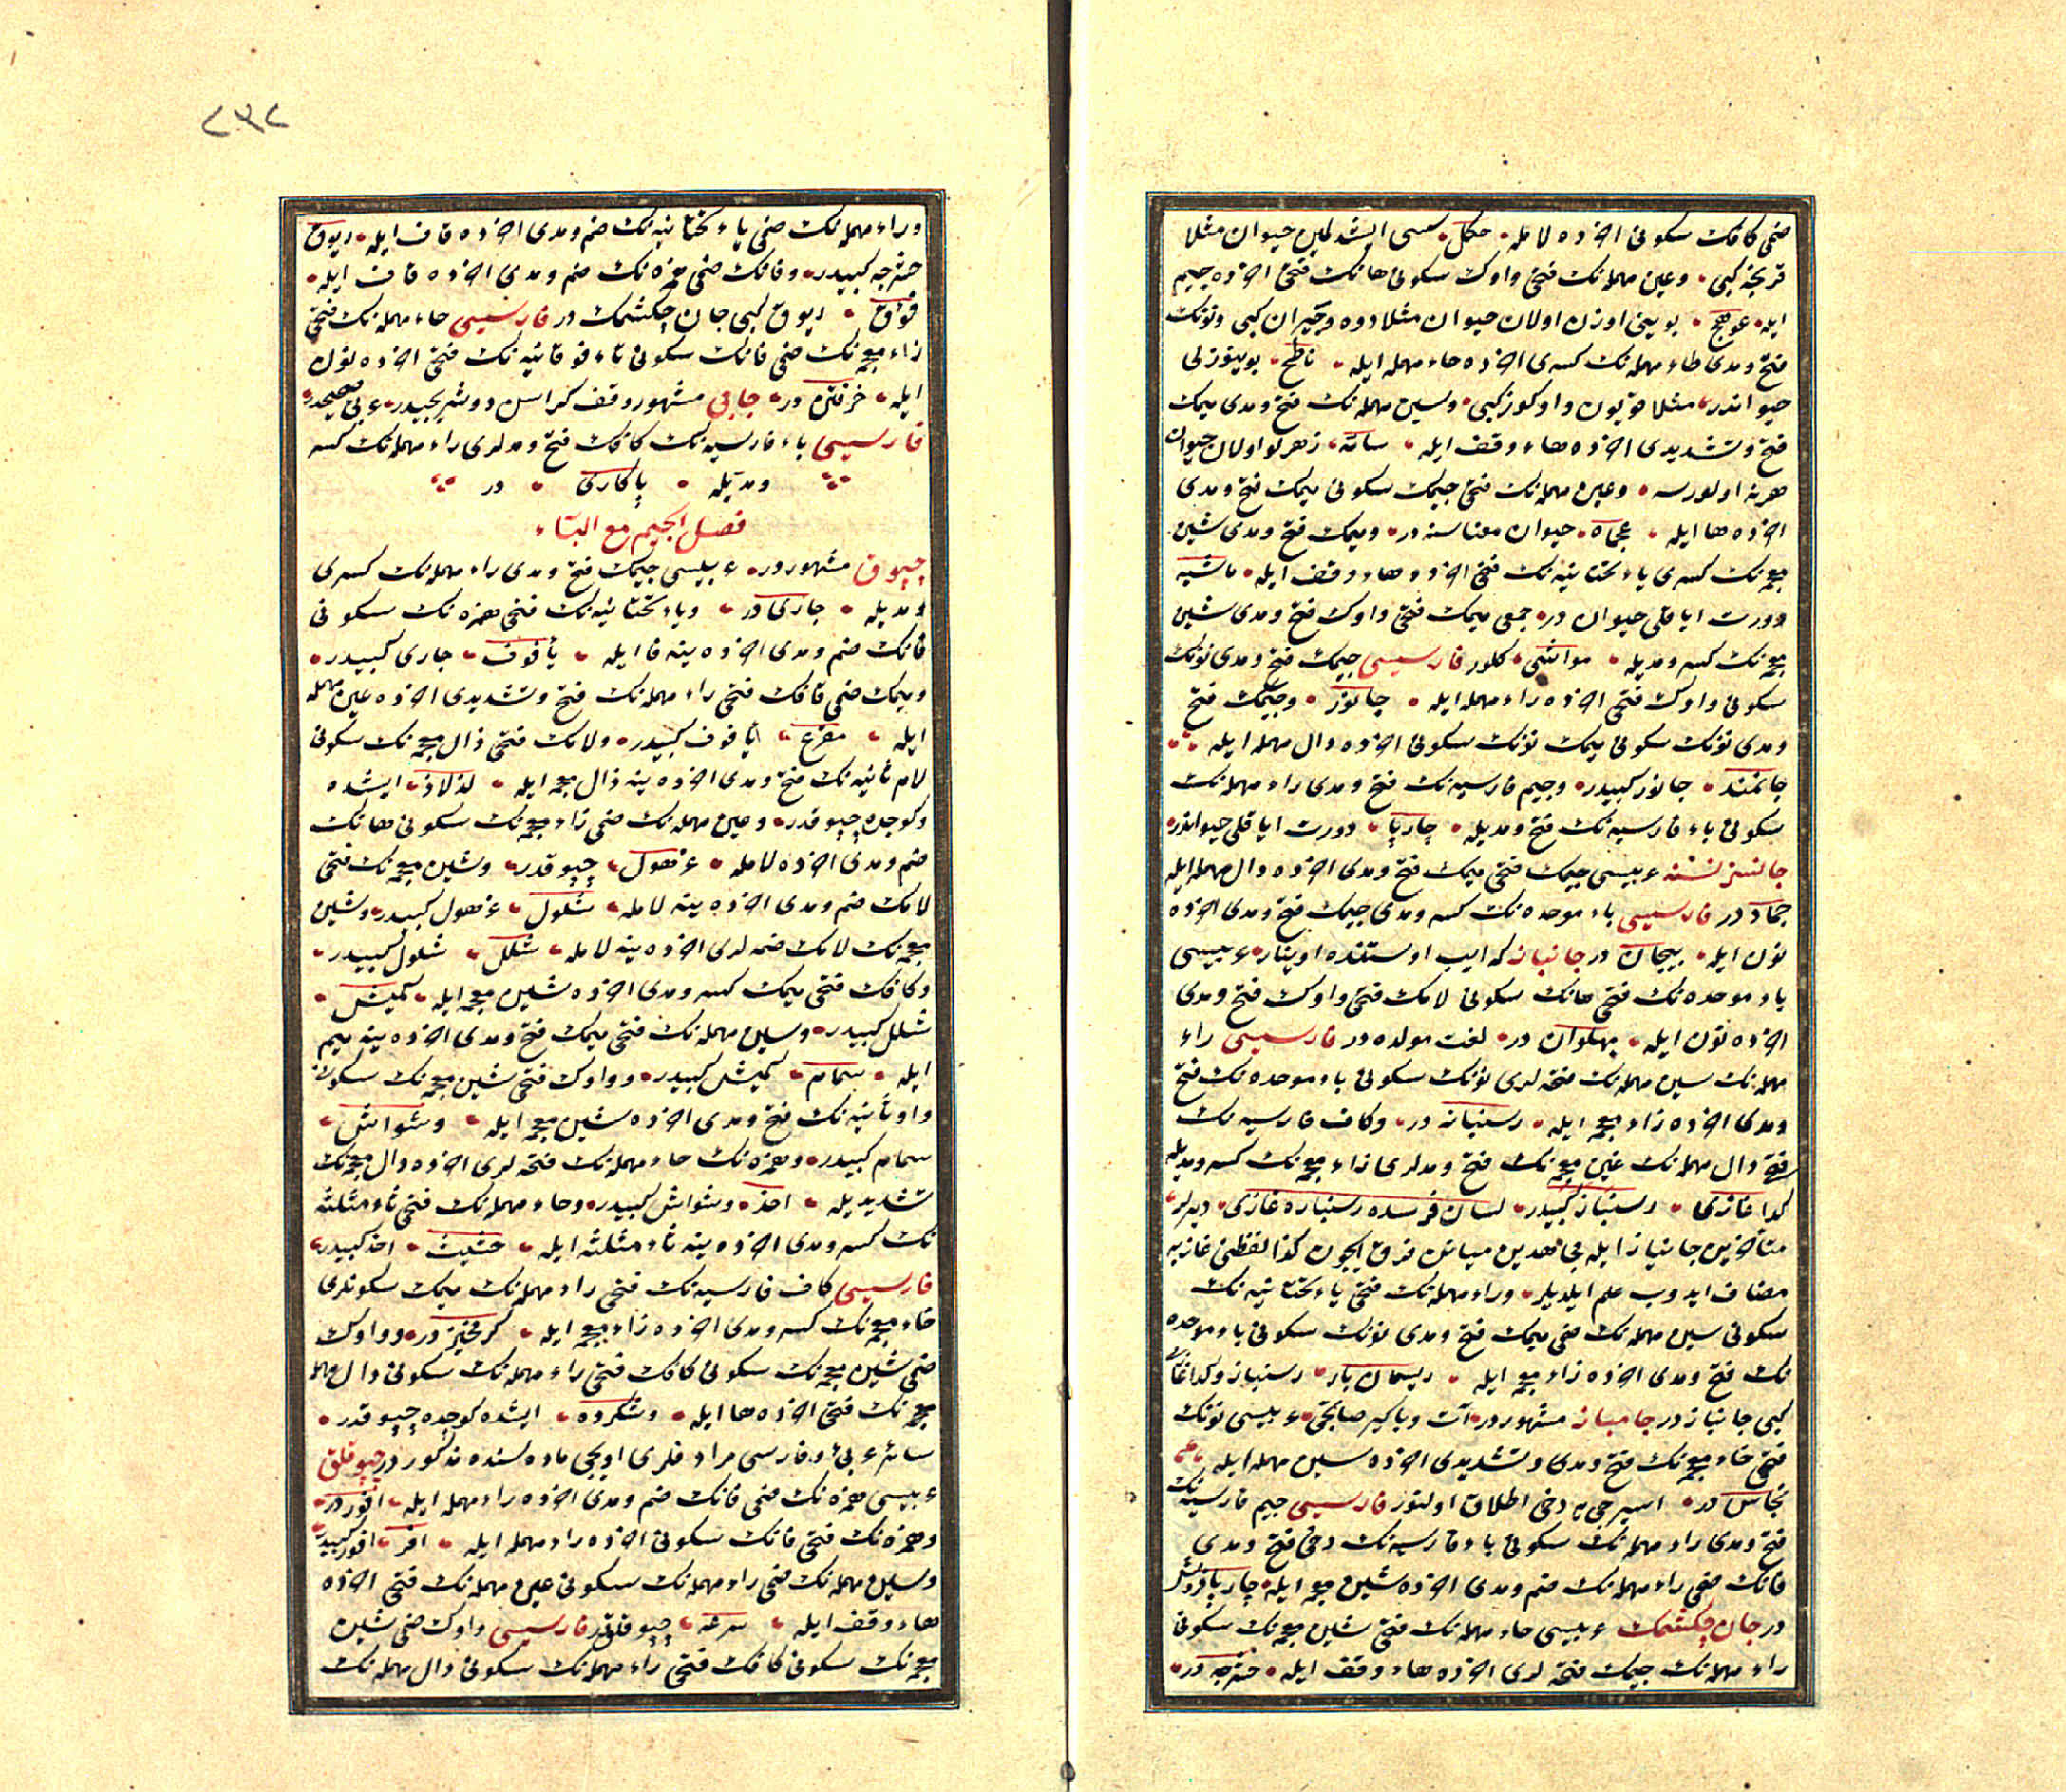 ضمی كافك سكونی اخرنده لامله حكل سسی ایشدلمین حیوان مثلا
قرنجه كبی وعین مهمله‌نك فتحی واوك سكونی هانك فتحی اخرنده جیم
ایله عوهج بوینی اوزن اولان حیوان مثلا دوه وجیران كبی ونونك
فتح ومدی طاء مهمله‌نك كسری اخرنده حاء مهمله ایله ناطح بوینوزلی
حیواندر مثلا قویون واوكوز كبی وسین مهمله‌نك فتح ومدی میمك
فتح وتشدیدی اخرنده هاء وقف ایله سامّه زهرلو اولان حیوان
هرنه اولورسه وعین مهمله‌نك فتحی جیمك سكونی میمك فتح ومدی
اخرنده ها ایله عجماه حیوان معناسنه در ومیمك فتح ومدی شین
معجمه‌نك كسری یاء تحتانیه‌نك فتحی اخرنده هاء وقف ایله ماشیه
دورت ایاقلی حیوان در جمعی میمك فتحی واوك فتح ومدی شین
معجمه‌نك كسر ومدیله مواشی كلور فارسیسی جیمك فتح ومدی نونك
سكونی واوك فتحی اخرنده راء مهمله ایله جانور وجیمك فتح
ومدی نونك سكونی میمك نونك سكونی اخرنده دال مهمله ایله
جانمند جانور كبیدر وجیم فارسیه‌نك فتح ومدی راء مهمله‌نك
سكونی باء فارسیه‌نك فتح ومدیله چارپا دورت ایاقلی حیواندر
جانسز نسنه عربیسی جیمك فتحی میمك فتح ومدی اخرنده دال مهمله ایله
جماد در فارسیسی باء موحده‌نك كسر ومدی جیمك فتح ومدی اخرنده
نون ایله بیجان در جانباز كه ایپ اوستنده اوینار عربیسی
باء موحده‌نك فتحی هانك سكونی لامك فتحی واوك فتح ومدی
اخرنده نون ایله بهلوان در لغت مولده در فارسیسی راء
مهمله‌نك سین مهمله‌نك فتحه‌لری نونك سكونی باء موحده‌نك فتح
ومدی اخرنده زاء معجمه ایله رسنباز در وكاف فارسیه‌نك
فتح دال مهمله‌نك غین معجمه‌نك فتح ومدلری زاء معجمه‌نك كسر ومدیله
كداغازی رسنباز كبیدر لسان فرسده رسنبازه غازی دیرلر
متأخرین جانباز ایله مجاهدین میانن فرق ایچون كدا لفظنی غازی‌یه
مضاف ایدوب علم ایلدیلر وراء مهمله‌نك فتحی یاء تحتانیه‌نك
سكونی سین مهمله‌نك ضمی میمك فتح ومدی نونك سكونی باء موحده
نك فتح ومدی اخرنده زاء معجمه ایله ریسمان باز رسنباز وكداغازی
كبی جانباز در جامباز مشهور در آت وباركیر صاتجی عربیسی نونك
فتحی خاء معجمه‌نك فتح ومدی وتشدیدی اخرنده سین مهمله ایله
نخاس در اسیرجی‌یه دخی اطلاق اولنور فارسیسی جیم فارسیه‌نك
فتح ومدی راء مهمله‌نك سكونی باء فارسیه‌نك دخی فتح ومدی
فانك ضمی راء مهمله‌نك ضم ومدی اخرنده شین معجمه ایله چارپافروش
در جان چكشمك عربیسی حاء مهمله‌نك فتحی شین معجمه‌نك سكونی
راء مهمله‌نك جیمك فتحه‌لری اخرنده هاء وقف ایله حشرجه در
٢٣٢
وراء مهمله‌نك ضمی یاء تحتانیه‌نك ضم ومدی اخرنده قاف ایله ریوق
حشرجه كبیدر وفانك ضمی همزه‌نك ضم ومدی اخرنده قاف ایله
فؤوق ریوق كبی جان چكشمك در فارسیسی خاء مهمله‌نك فتحی
راء معجمه‌نك ضمی فانك سكونی تاء فوقانیه‌نك فتحی اخرنده نون
ایله خرفتن در جابی مشهور وقف كراسن دوشریجیدر عربی صحیحدر
فارسیسی باء فارسیه‌نك كافك فتح ومدلری راء مهمله‌نك كسر
ومدیله پاكاری در
فصل الجیم مع الباء
چبوق مشهور در عربیسی جیمك فتح ومدی راء مهمله‌نك كسری
ومدیله جاری در ویاء تحتانیه‌نك فتحی همزه‌نك سكونی
فانك ضم ومدی اخرنده ینه فا ایله یأفوف جاری كبیدر
ومیمك ضمی قافك فتحی راء مهمله‌نك فتح وتشدیدی اخرنده عین مهمله
ایله مقرع یأفوف كبیدر ولامك فتحی ذال معجمه‌نك سكونی
لام ثانیه‌نك فتح ومدی اخرنده ینه ذال معجمه ایله لذلاذ ایشده
وكوجده چبوقدر وعین مهمله‌نك ضمی زاء معجمه‌نك سكونی هانك
ضم ومدی اخرنده لامله عزهول چبوقدر وشین معجمه‌نك فتحی
لامك ضم ومدی اخرنده ینه لامله شلول عزهول كبیدر وشین
معجمه‌نك لامك ضمه‌لری اخرنده ینه لامله شلل شلول كبیدر
وكافك فتحی میمك كسر ومدی اخرنده شین معجمه ایله كمیش
شلل كبیدر وسین مهمله‌نك فتحی میمك فتح ومدی اخرنده ینه میم
ایله سمام كمیش كبیدر وواوك فتحی شین معجمه‌نك سكونی
واو ثانیه‌نك فتح ومدی اخرنده شین معجمه ایله وشواش
سمام كبیدر وهمزه‌نك حاء مهمله‌نك فتحه‌لری اخرنده ذال معجمه‌نك
تشدیدیله احذ وشواش كبیدر وحاء مهمله‌نك فتحی ثاء مثلثه
نك كسر ومدی اخرنده ینه ثاء مثلثه ایله حثیث احذ كبیدر
فارسیسی كاف فارسیه‌نك فتحی راء مهمله‌نك میمك سكونلری
خاء معجمه‌نك كسر ومدی اخرنده زاء معجمه ایله كرمخیز در وواوك
ضمی شین معجمه‌نك سكونی كافك فتحی راء مهمله‌نك سكونی دال مهمله
نك فتحی اخرنده ها ایله وشكرده ایشده كوجده چبوقدر
سائر عربی وفارسی مرادفلری اوجی ماده‌سنده مذكور در چبوقلق
عربیسی همزه‌نك ضمی فانك ضم ومدی اخرنده راء مهمله ایله افور در
وهمزه‌نك فتحی فانك سكونی اخرنده راء مهمله ایله افر افور كبیدر
وسین مهمله‌نك ضمی راء مهمله‌نك سكونی عین مهمله‌نك فتحی اخرنده
هاء وقف ایله سرعه چبوقلقدر فارسیسی واوك ضمی شین
معجمه‌نك سكونی كافك فتحی راء مهمله‌نك سكونی دال مهمله‌نك